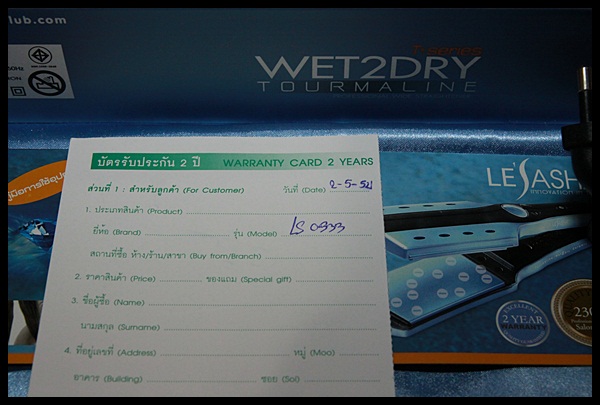 lub.com
T-series
WET2DRY
TOURMALINE
บัตรรับประกัน 2 ปี WARRANTY CARD 2 YEARS
ส่วนที่ 1 : สำหรับลูกค้า (For Customer) วันที่ (Date) 2-5-54
1. ประเภทสินค้า (Product)
ยี่ห้อ (Brand) รุ่น (Model) LS 0933
สถานที่ซื้อ ห้าง/ร้าน/สาขา (Buy from/Branch)
2. ราคาสินค้า (Price) ของแถม (Special gift)
3. ชื่อผู้ซื้อ (Name)
นามสกุล (Surname)
4. ที่อยู่เลขที่ (Address) หมู่ (Moo)
อาคาร (Building) ซอย (Soi)
LE'SASH
INNOVATION
EXCELLENT
2 YEAR
WARRANTY
230